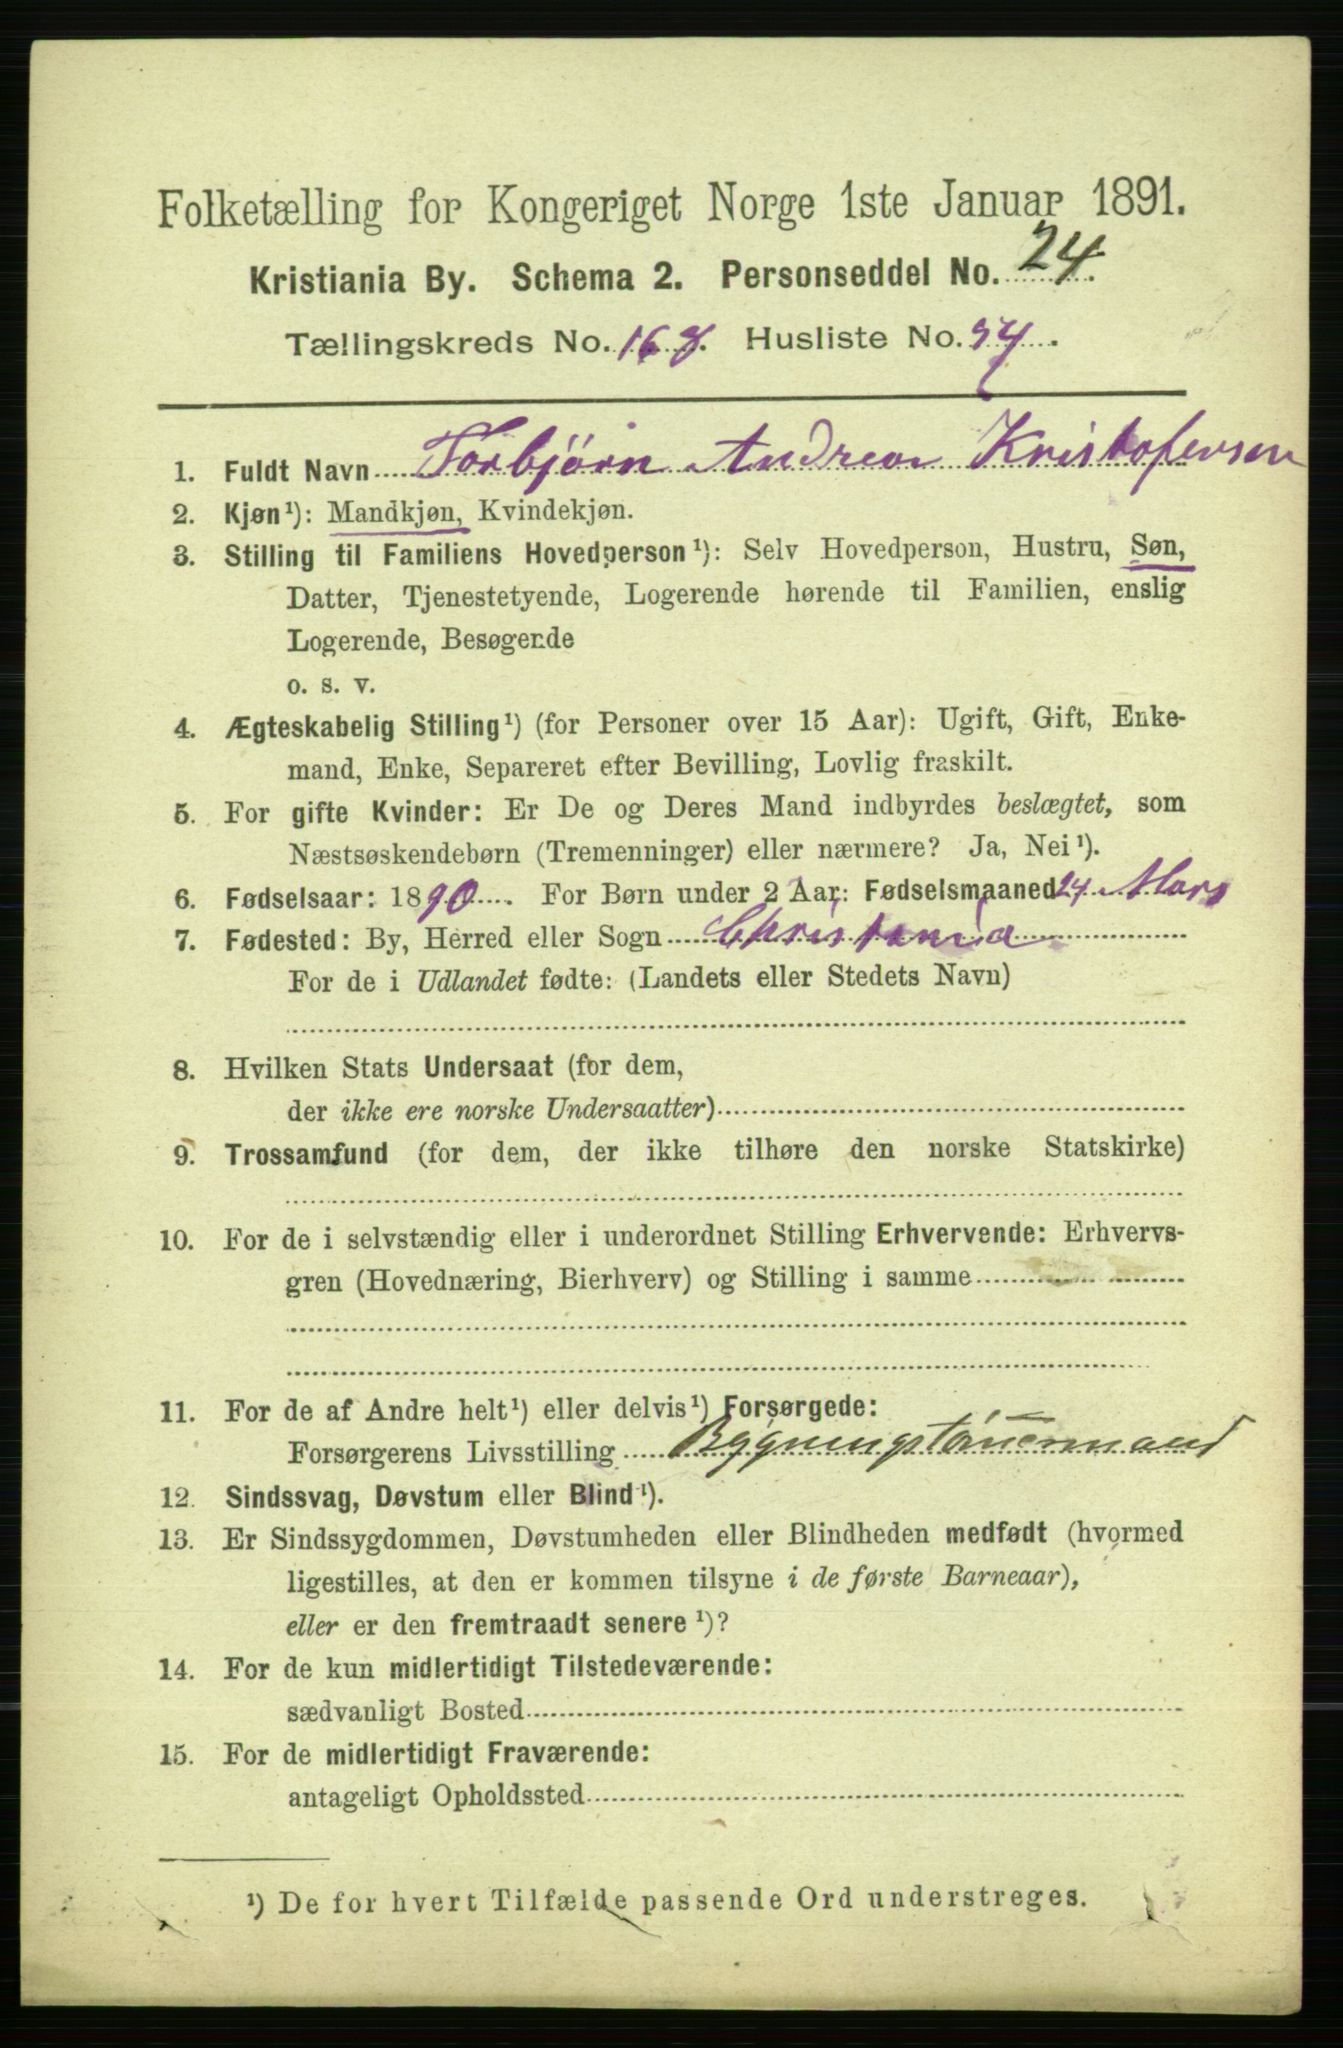 Folketælling for Kongeriget Norge 1ste Januar 1891.
Kristiania By. Schema 2. Personseddel No. 24.
Tællingskreds No. 168. Husliste No. 54.
1. Fuldt Navn Torbjørn Andreas Kristofersen
2. Kjøn¹): Mandkjøn, Kvindekjøn.
3. Stilling til Familiens Hovedperson¹): Selv Hovedperson, Hustru, Søn,
Datter, Tjenestetyende, Logerende hørende til Familien, enslig
Logerende, Besøgende
o. s. v.
4. Ægteskabelig Stilling¹) (for Personer over 15 Aar): Ugift, Gift, Enke-
mand, Enke, Separeret efter Bevilling, Lovlig fraskilt.
5. For gifte Kvinder: Er De og Deres Mand indbyrdes beslægtet, som
Næstsøskendebørn (Tremenninger) eller nærmere? Ja, Nei¹).
6. Fødselsaar: 1890. For Børn under 2 Aar: Fødselsmaaned 24 Mars
7. Fødested: By, Herred eller Sogn Christania
For de i Udlandet fødte: (Landets eller Stedets Navn)
8. Hvilken Stats Undersaat (for dem,
der ikke ere norske Undersaatter)
9. Trossamfund (for dem, der ikke tilhøre den norske Statskirke)
10. For de i selvstændig eller i underordnet Stilling Erhvervende: Erhvervs-
gren (Hovednæring, Bierhverv) og Stilling i samme
11. For de af Andre helt¹) eller delvis¹) Forsørgede:
Forsørgerens Livsstilling Bygningstømmermand
12. Sindssvag, Døvstum eller Blind¹).
13. Er Sindssygdommen, Døvstumheden eller Blindheden medfødt (hvormed
ligestilles, at den er kommen tilsyne i de første Barneaar),
eller er den fremtraadt senere¹)?
14. For de kun midlertidigt Tilstedeværende:
sædvanligt Bosted
15. For de midlertidigt Fraværende:
antageligt Opholdssted
¹) De for hvert Tilfælde passende Ord understreges.